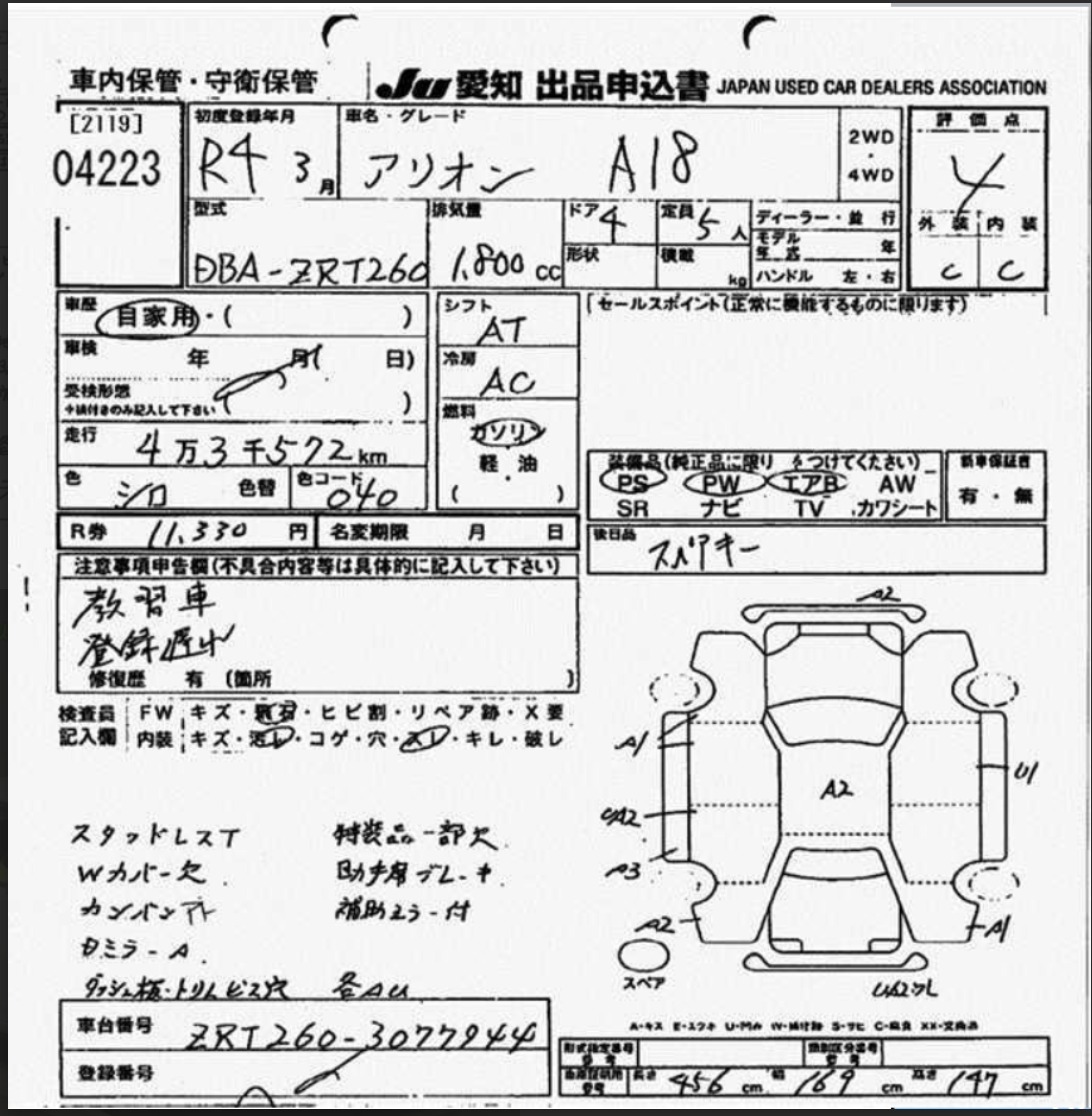 車内保管・守衛保管
Ju 愛知 出品申込書 JAPAN USED CAR DEALERS ASSOCIATION
[2119]
04223
初度登録年月
R4 3月
車名・グレード
アリオン A18
2WD
・
4WD
評価点
4
外装 内装
C C
型式
DBA-ZRT260
排気量
1,800 cc
ドア 4
定員 5人
形状
積載 kg
ディーラー・並行
モデル年式 年
ハンドル 左・右
車歴
自家用・( )
車検 年 月( 日)
受検形態
*検付きのみ記入して下さい( )
走行
4万3千572km
色
シロ 色替
色コード
040
シフト
AT
冷房
AC
燃料
ガソリン
軽・油
( )
セールスポイント(正常に機能するものに限ります)
装備品(純正品に限り をつけてください)
PS PW エアB AW
SR ナビ TV カワシート
新車保証書
有・無
R券 11,330 円 名変期限 月 日
後日品
スペアキー
注意事項申告欄(不具合内容等は具体的に記入して下さい)
教習車
登録遅レ
修復歴 有 (箇所 )
検査員 FW キズ・飛石・ヒビ割・リペア跡・X要
記入欄 内装 キズ・汚レ・コゲ・穴・スレ・キレ・破レ
スタッドレスT 特装品一部欠
Wカバー欠 助手席ブレーキ
カンバンアト 補助ミラー付
ミラーA
ダッシュ板・トリムビス穴 各AU
A2
A1
U1
A2
UA2
A3
A2
A1
スペア
A-キズ E-エクボ U-凹み W-補修跡 S-サビ C-腐食 XX-交換済
車台番号
ZRT260-3077944
登録番号
形式指定番号
参考
類別区分番号
参考
参考
長さ 456 cm 幅 169 cm 高さ 147 cm